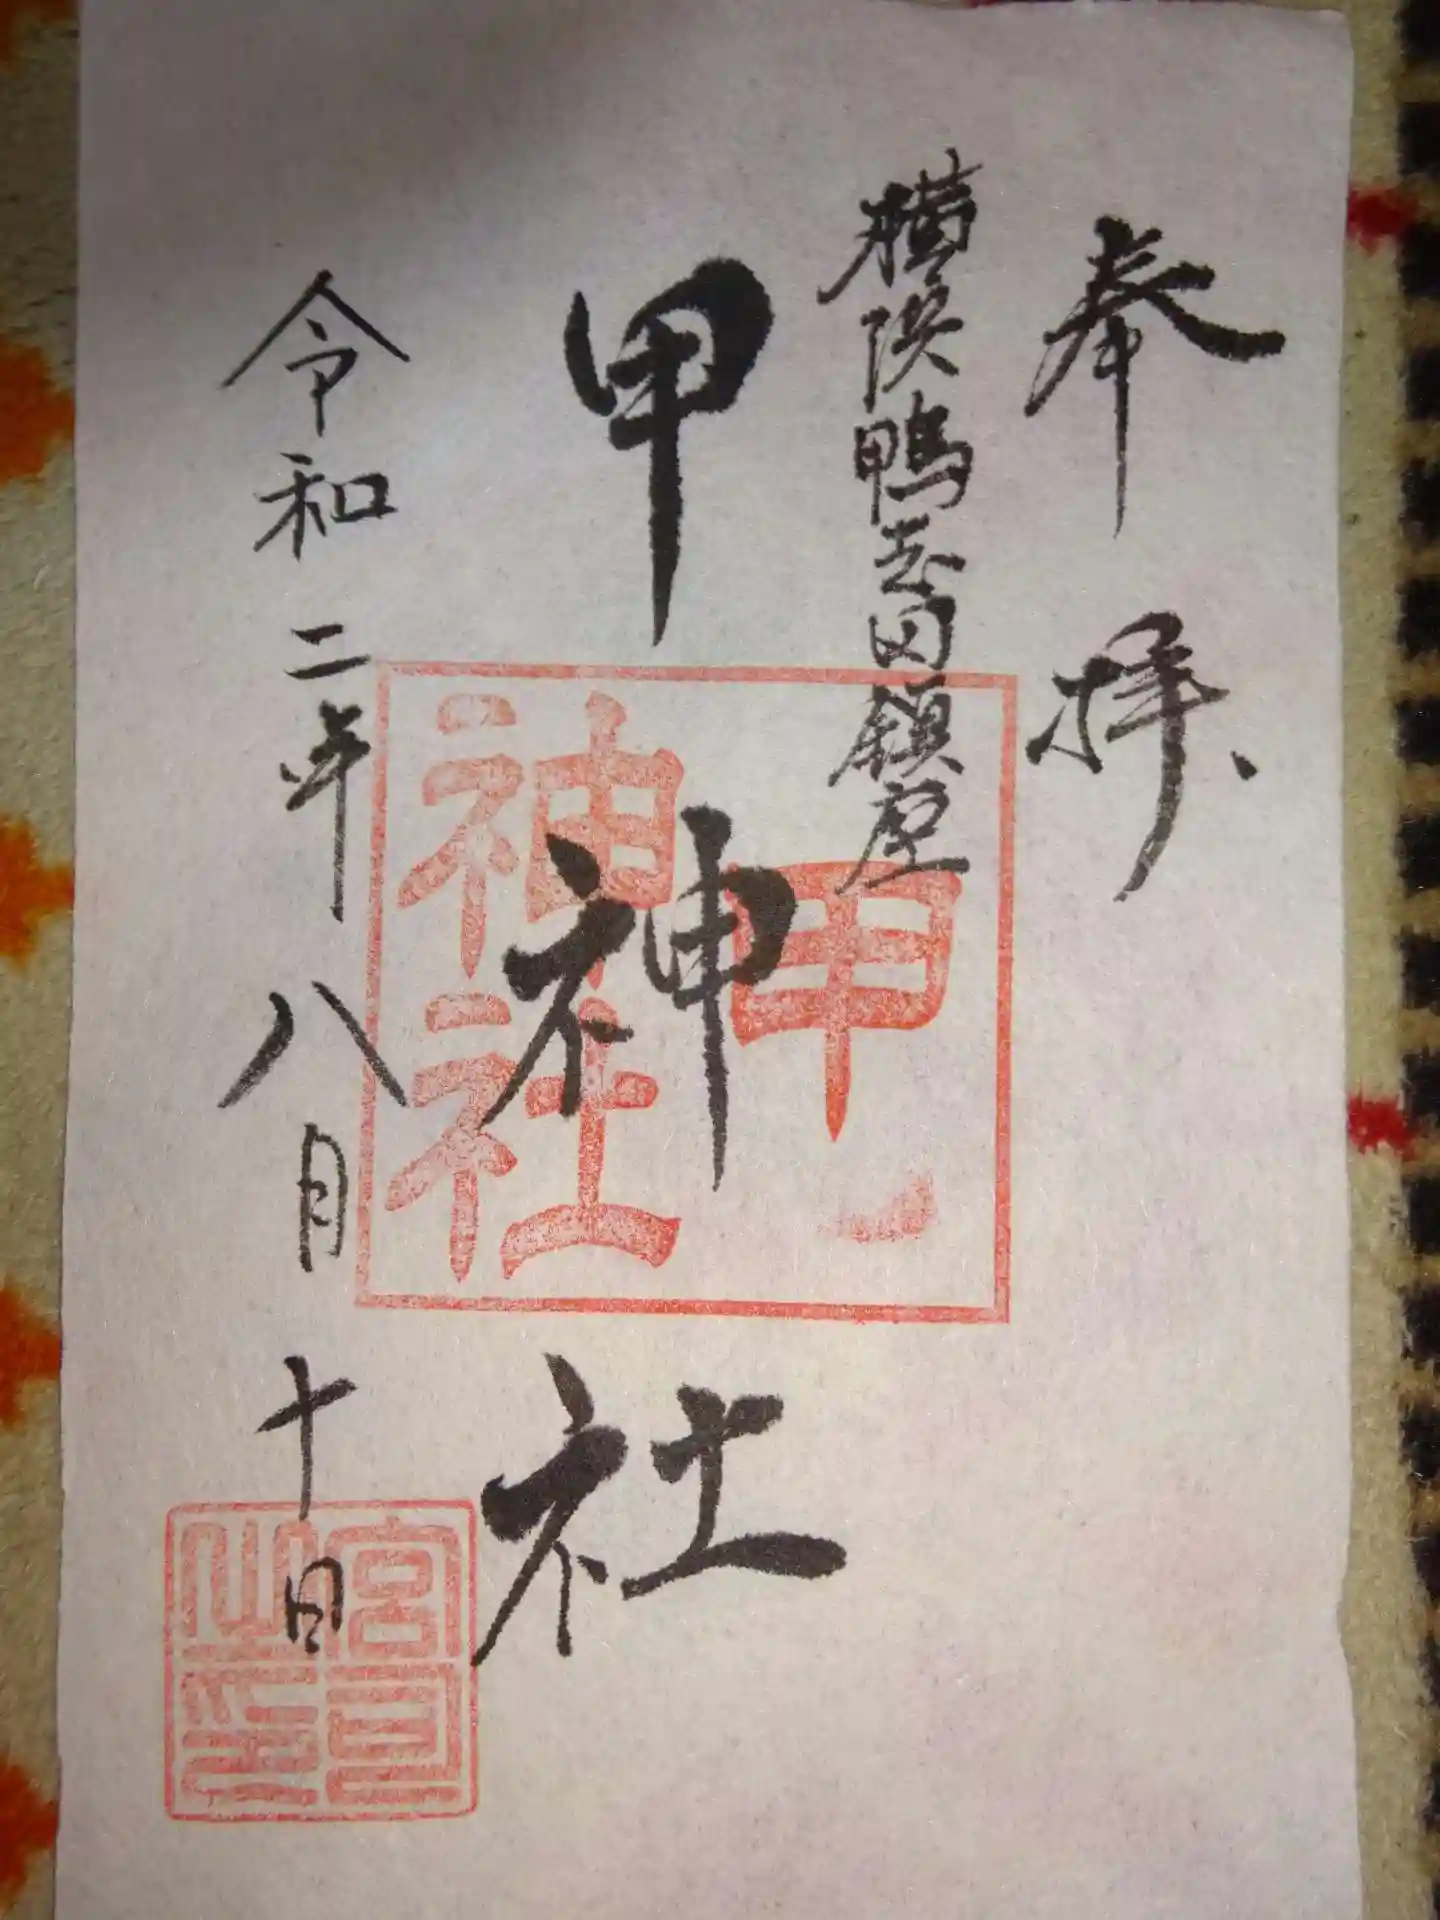 奉拝
横浜鴨志田鎮座
甲神社
甲神社
令和二年八月十日
宮司之印